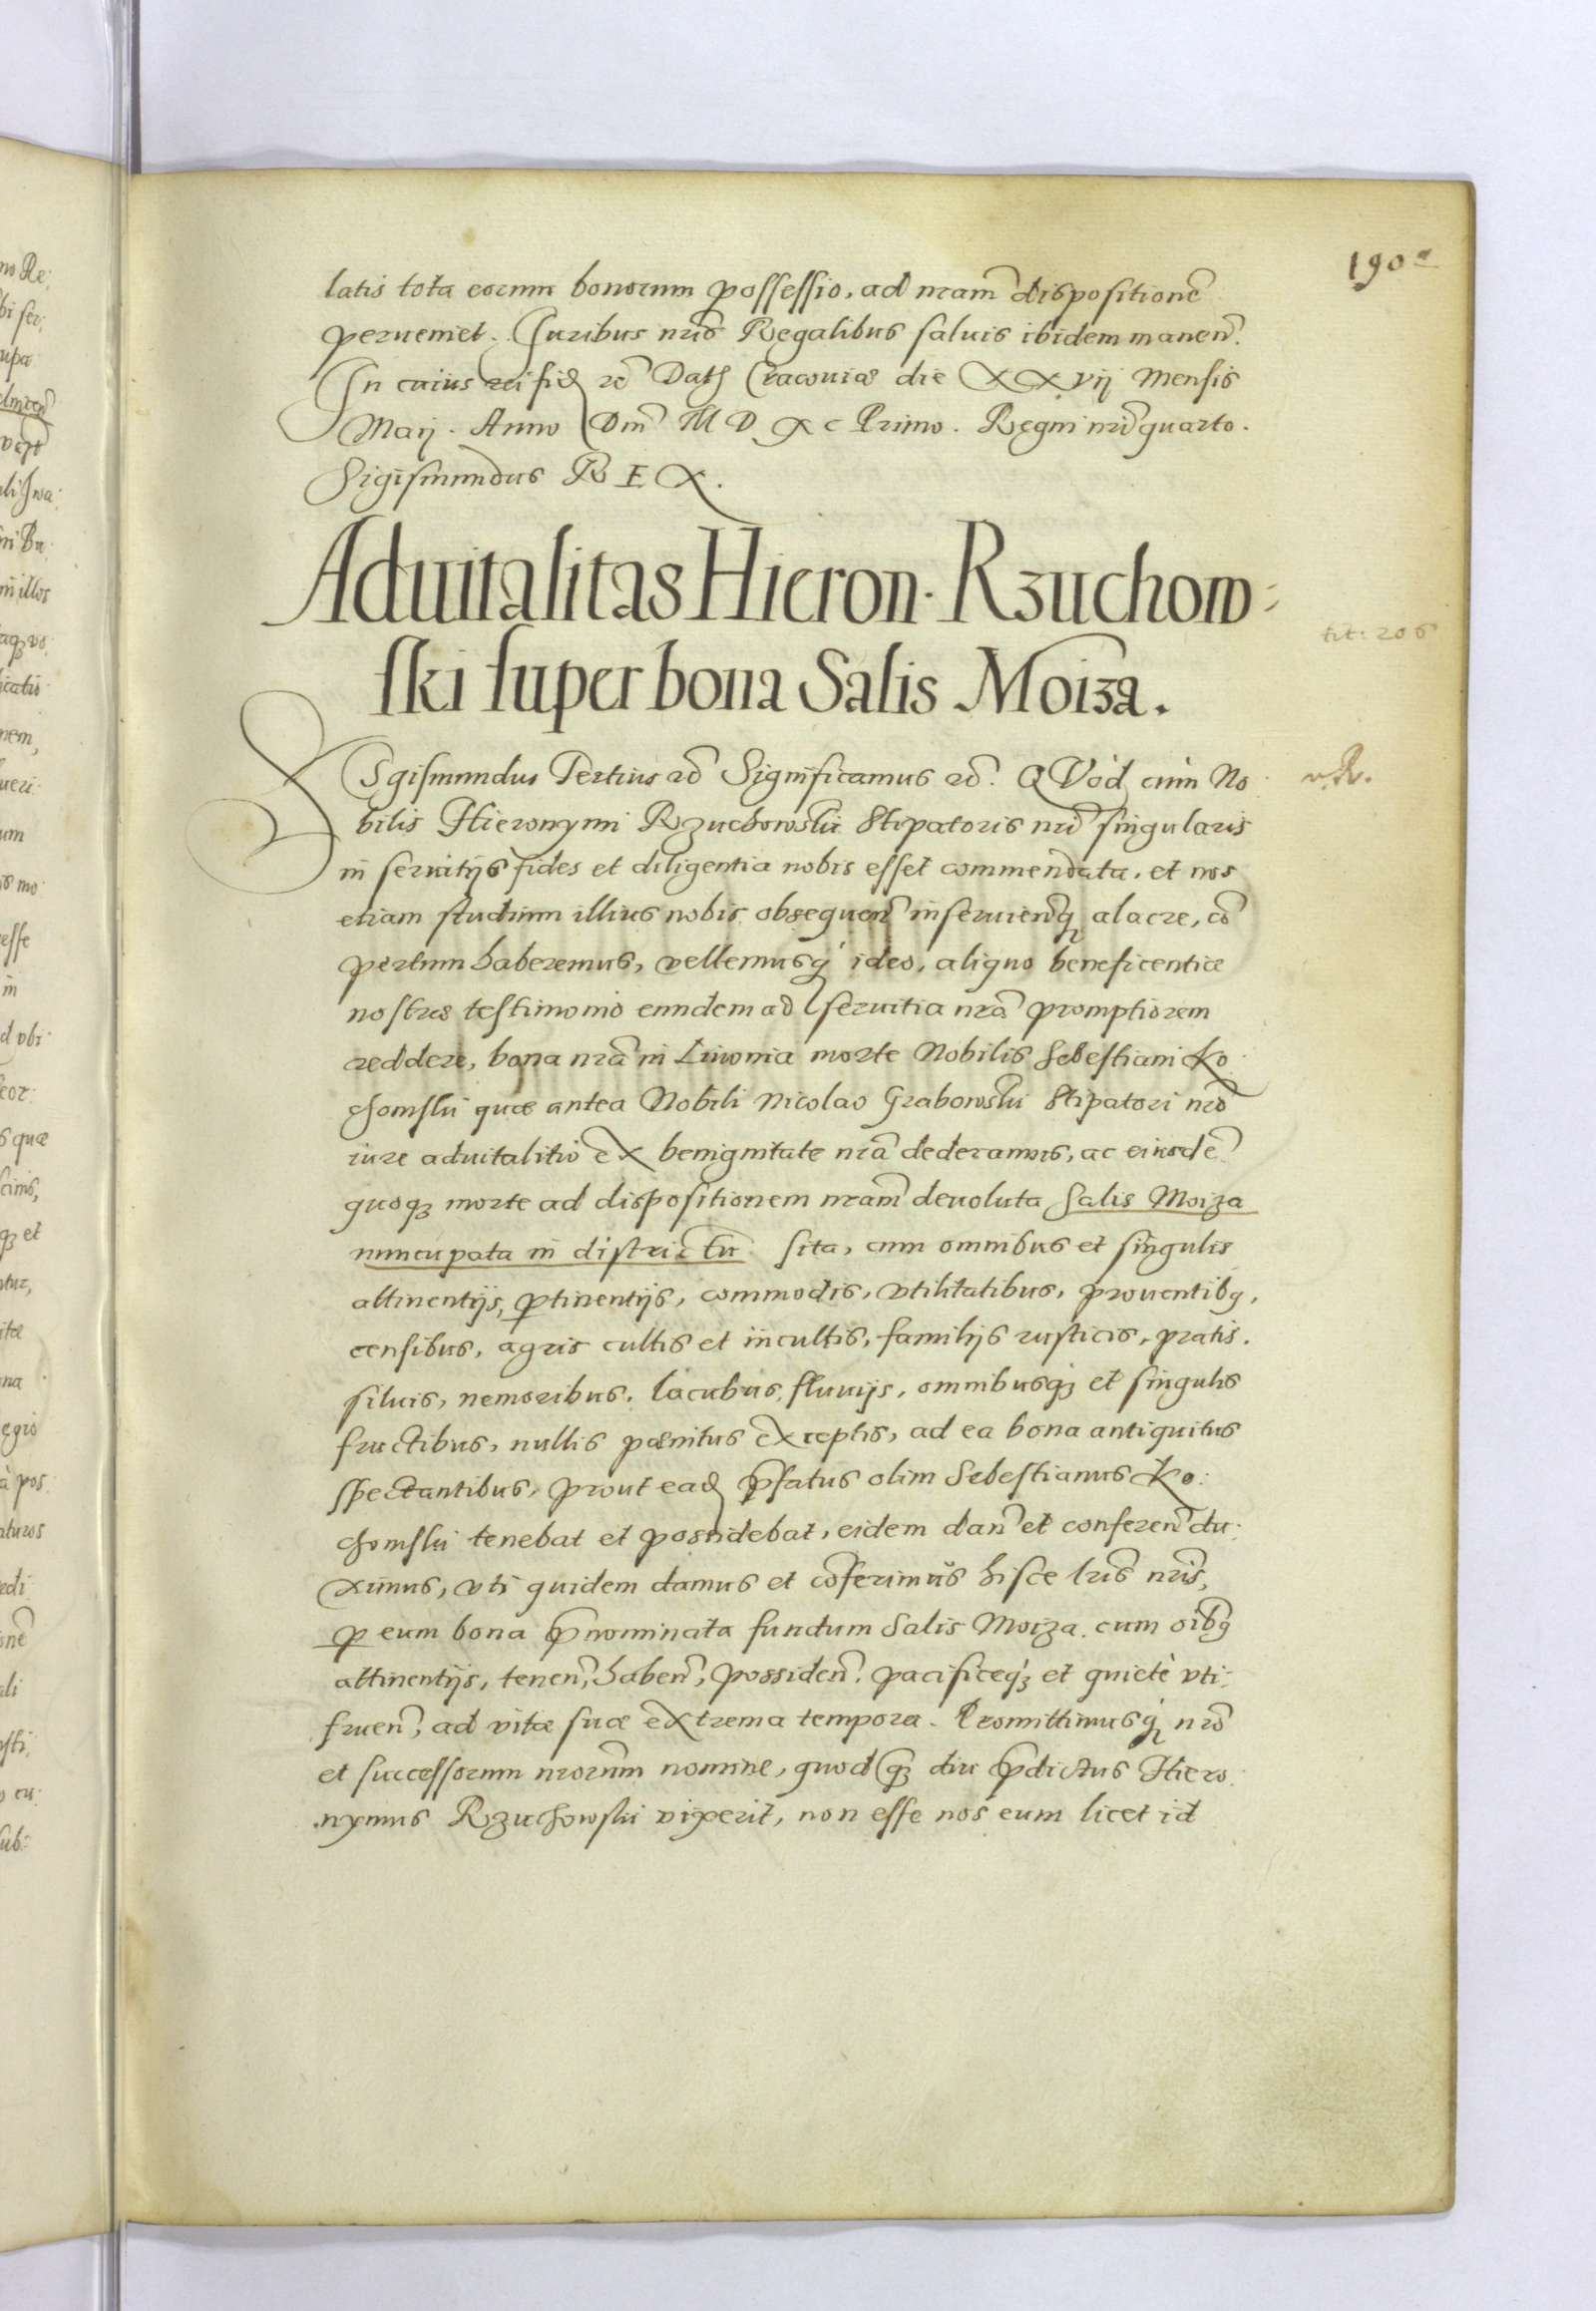 190a
latis tota eorum bonorum possessio, ad nram̃ dispositionẽ
perueniet. Juribus nr̃is Regalibus saluis ibidem manen̄.
In cuius rei fid etc̃ Dat Cracouiæ die XXvij Mensis
Maij. Anno Dn̄i MDXc Primo. Regni nr̃i quarto.
Sigismundus REX.
Aduitalitas Hieron. Rzuchow:
ski super bona Salis Moiza.
tit: 206
SIgismundus Tertius etc̃ Significamus etc̃. QVòd cùm No
bilis Hieronymi Rzuchowski Stipatoris nr̃i singularis
in seruitijs fides et diligentia nobis esset commendata, et nos
etiam studium illius nobis obsequen̄ inseruien̄q; alacre, cõ
pertum haberemus, vellemusq; ideo, aliquo beneficentiæ
nostræ testimonio eundem ad seruitia nrã promptiorem
reddere, bona nrã in Liuonia morte Nobilis Sebestiani Ko
chomski quæ antea Nobili Nicolao Grabowski Stipatori nr̃o
iure aduitalitio ex benignitate nrã dederamus, ac eiusdẽ
quoq; morte ad dispositionem nram̃ deuoluta Salis Moiza
nuncupata in districtu sita, cum omnibus et singulis
attinentijs, ptinentijs, commodis, vtilitatibus, prouentibq,
censibus, agris cultis et incultis, familijs rusticis, pratis.
siluis, nemoribus, lacubus, fluuijs, omnibusq; et singulis
fructibus, nullis pænitus exceptis, ad ea bona antiquitus
spectantibus, prout ead p̃fatus olim Sebestianus Ko:
chomski tenebat et possidebat, eidem dan̄ et conferen̄ du:
ximus, vti quidem damus et cõferimus hisce lr̃is nr̃is,
p eum bona p̃nominata fundum Salis Moiza cum oĩbq
attinentijs, tenen̄, haben̄, possiden̄. pacificeq; et quietè vti:
fruen̄, ad vitæ suæ extrema tempora. Promittimusq; nr̃o
et successorum nrorum̃ nomine, quod q; diu p̃dictus Hiero
nymus Rzuchowski vixerit, non esse nos eum licet id